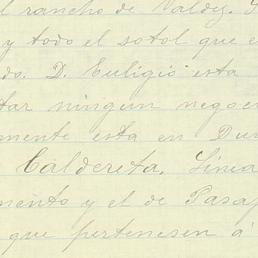 l rancho de Valdez. S
y todo el sotol que e
do. D. Euligio esta
tar ningun negoc
mente esta en Du
Caldereta. Linea
mento y el de Pasaj
que pertenesen á